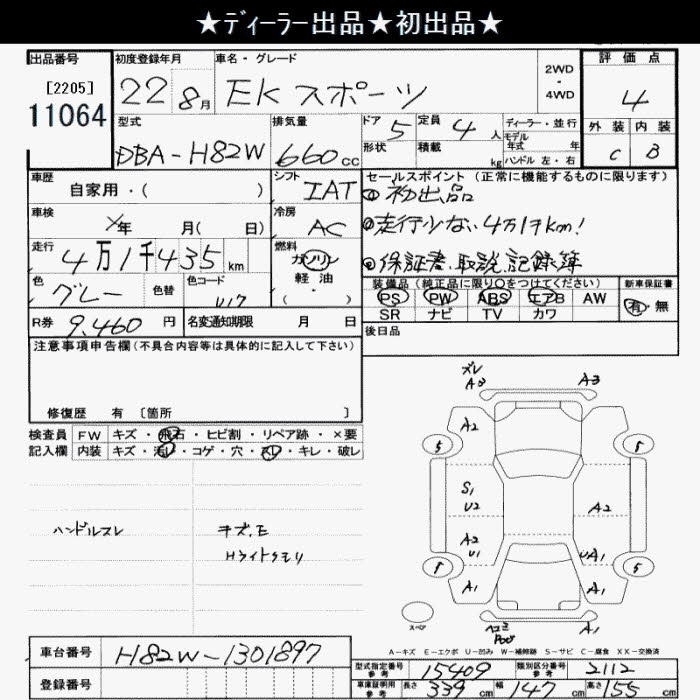 ★ディーラー出品★初出品★
出品番号 初度登録年月 車名・グレード 2WD・4WD 評価点
[2205] 22 8月 EK スポーツ 4
11064
型式 排気量 ドア 5 定員 4人 ディーラー・並行 外装 内装
DBA-H82W 660cc 形状 積載 kg モデル年式 年 C B
ハンドル 左・右
車歴 シフト IAT セールスポイント (正常に機能するものに限ります)
自家用・( ) ① 初出品
車検 年 月( 日) 冷房 AC ②走行少ない4万1千km!
走行 4万1千435km 燃料 ガソリン ③保証書、取説、記録簿
色 グレー 色替 色コード U17 軽油 ・( )
装備品 (純正品に限り○をつけてください) 新車保証書
PS PW ABS エアB AW 有・無
SR ナビ TV カワ
R券 9,460円 名変通知期限 月 日 後日品
注意事項申告欄(不具合内容等は具体的に記入して下さい)
修復歴 有 〔箇所 〕
検査員 FW キズ・飛石・ヒビ割・リペア跡・×要
記入欄 内装 キズ・汚レ・コゲ・穴・スレ・キレ・破レ
ハンドルスレ キズ、E
Hライトクモリ
ズレ
A3 A3
A2
5 5
S1
U2 A2
A2
U1 UA1
5 5
A1 A1
スペア A1
A-キズ E-エクボ U-凹み W-補修跡 S-サビ C-腐食 XX-交換済
車台番号 H82W-1301897
登録番号
型式指定番号 参考 15409 類別区分番号 参考 2112
車庫証明用 参考 長さ 339cm 幅 147cm 高さ 155cm